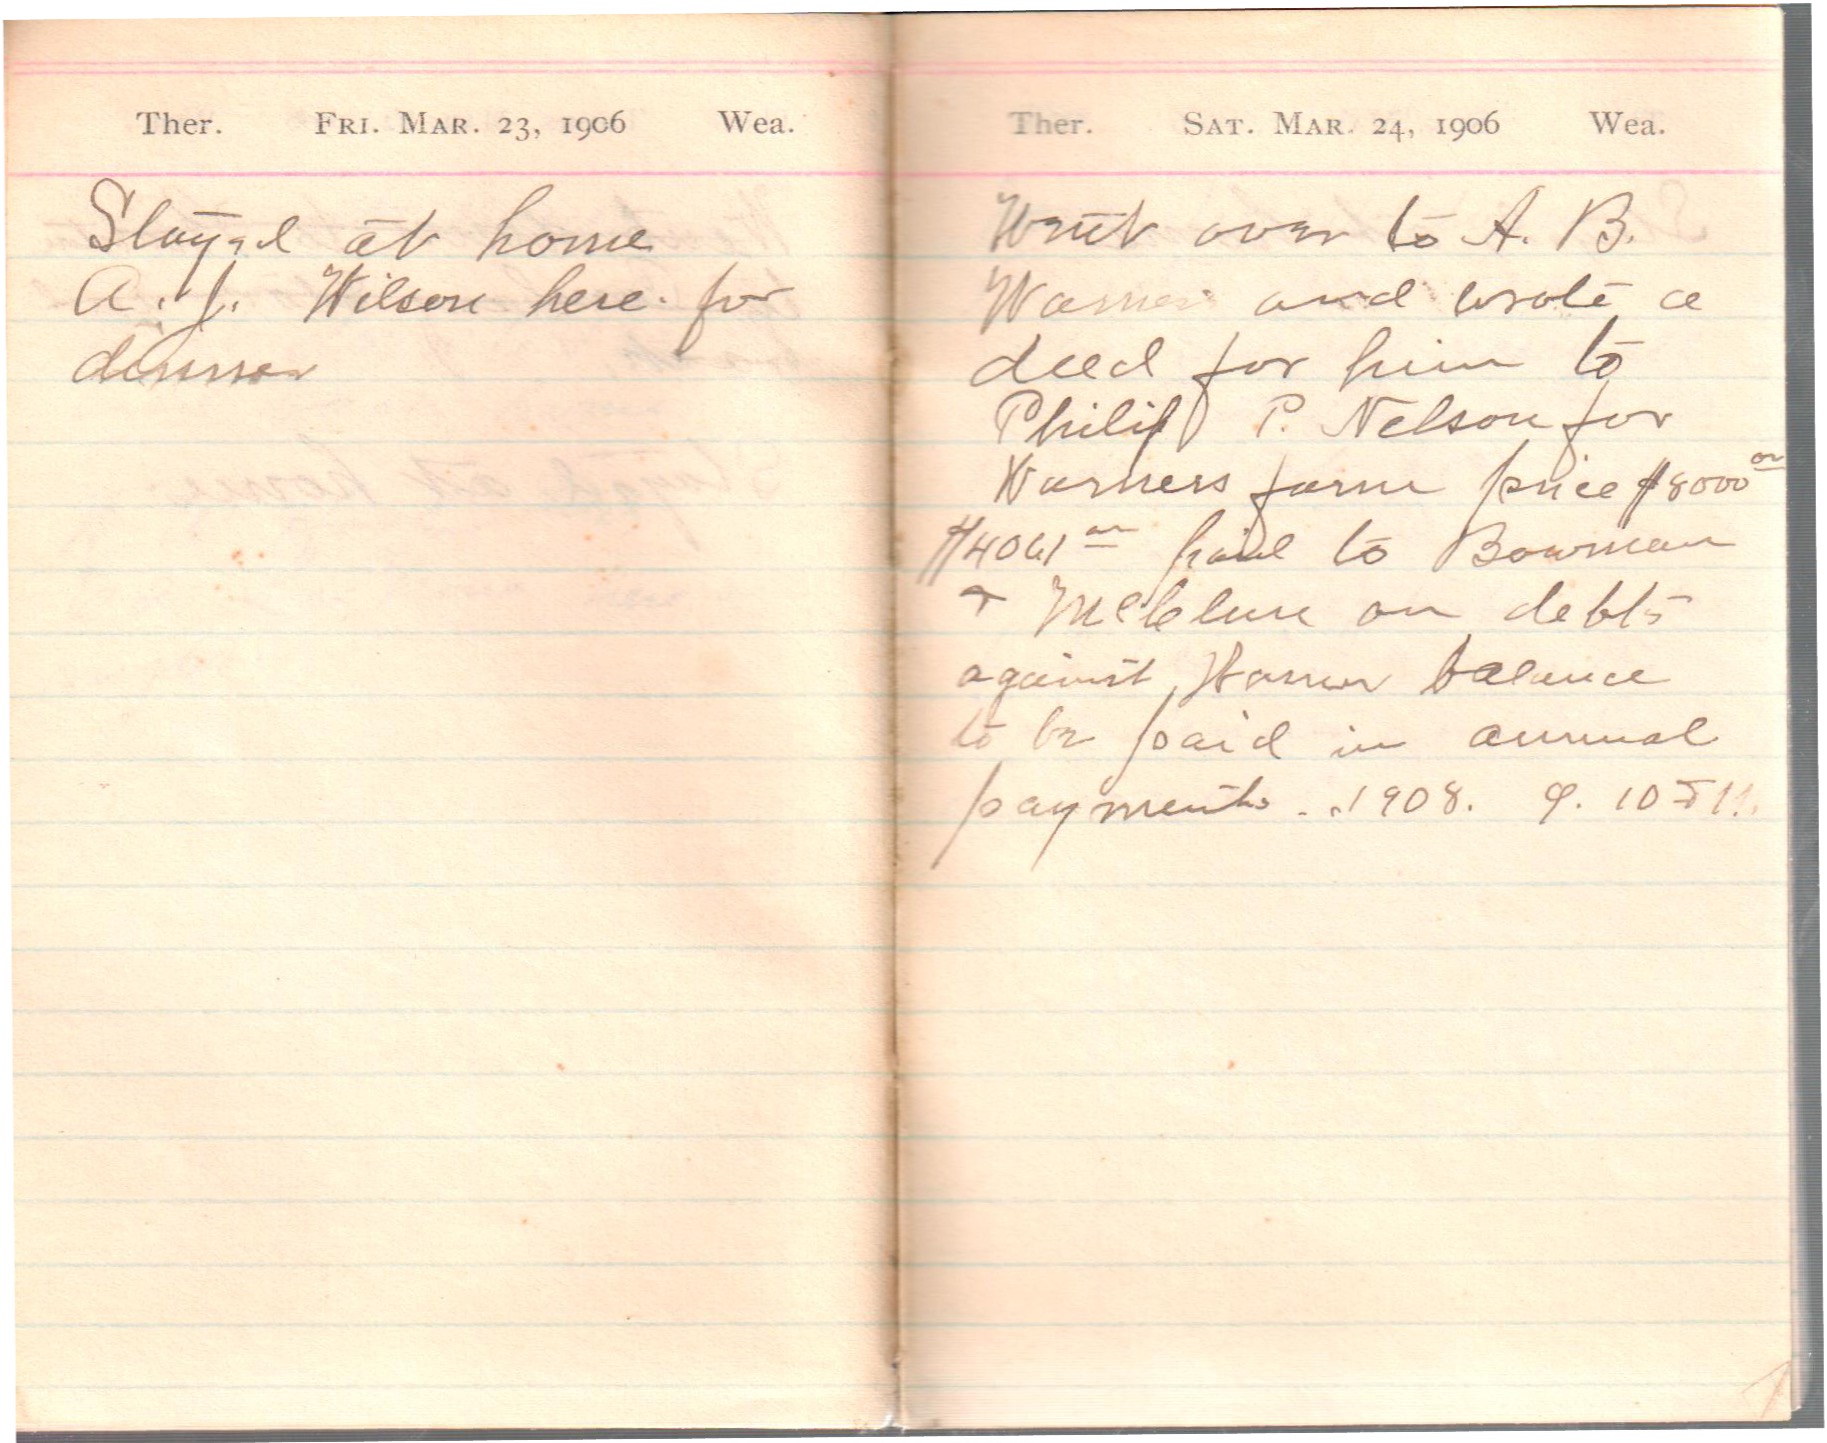 Ther. Fri. Mar. 23, 1906 Wea.
Stayed at home
A. J. Wilson here for
dinner
Ther. Sat. Mar. 24, 1906 Wea.
Went over to A. B.
Warner and wrote a
deed for him to
Philip P. Nelson for
Warners farm price $8000 00
$4061 00 paid to Bowman
+ McClure on debts
against Warner balance
to be paid in annual
payments 1908. 9. 10 & 11.